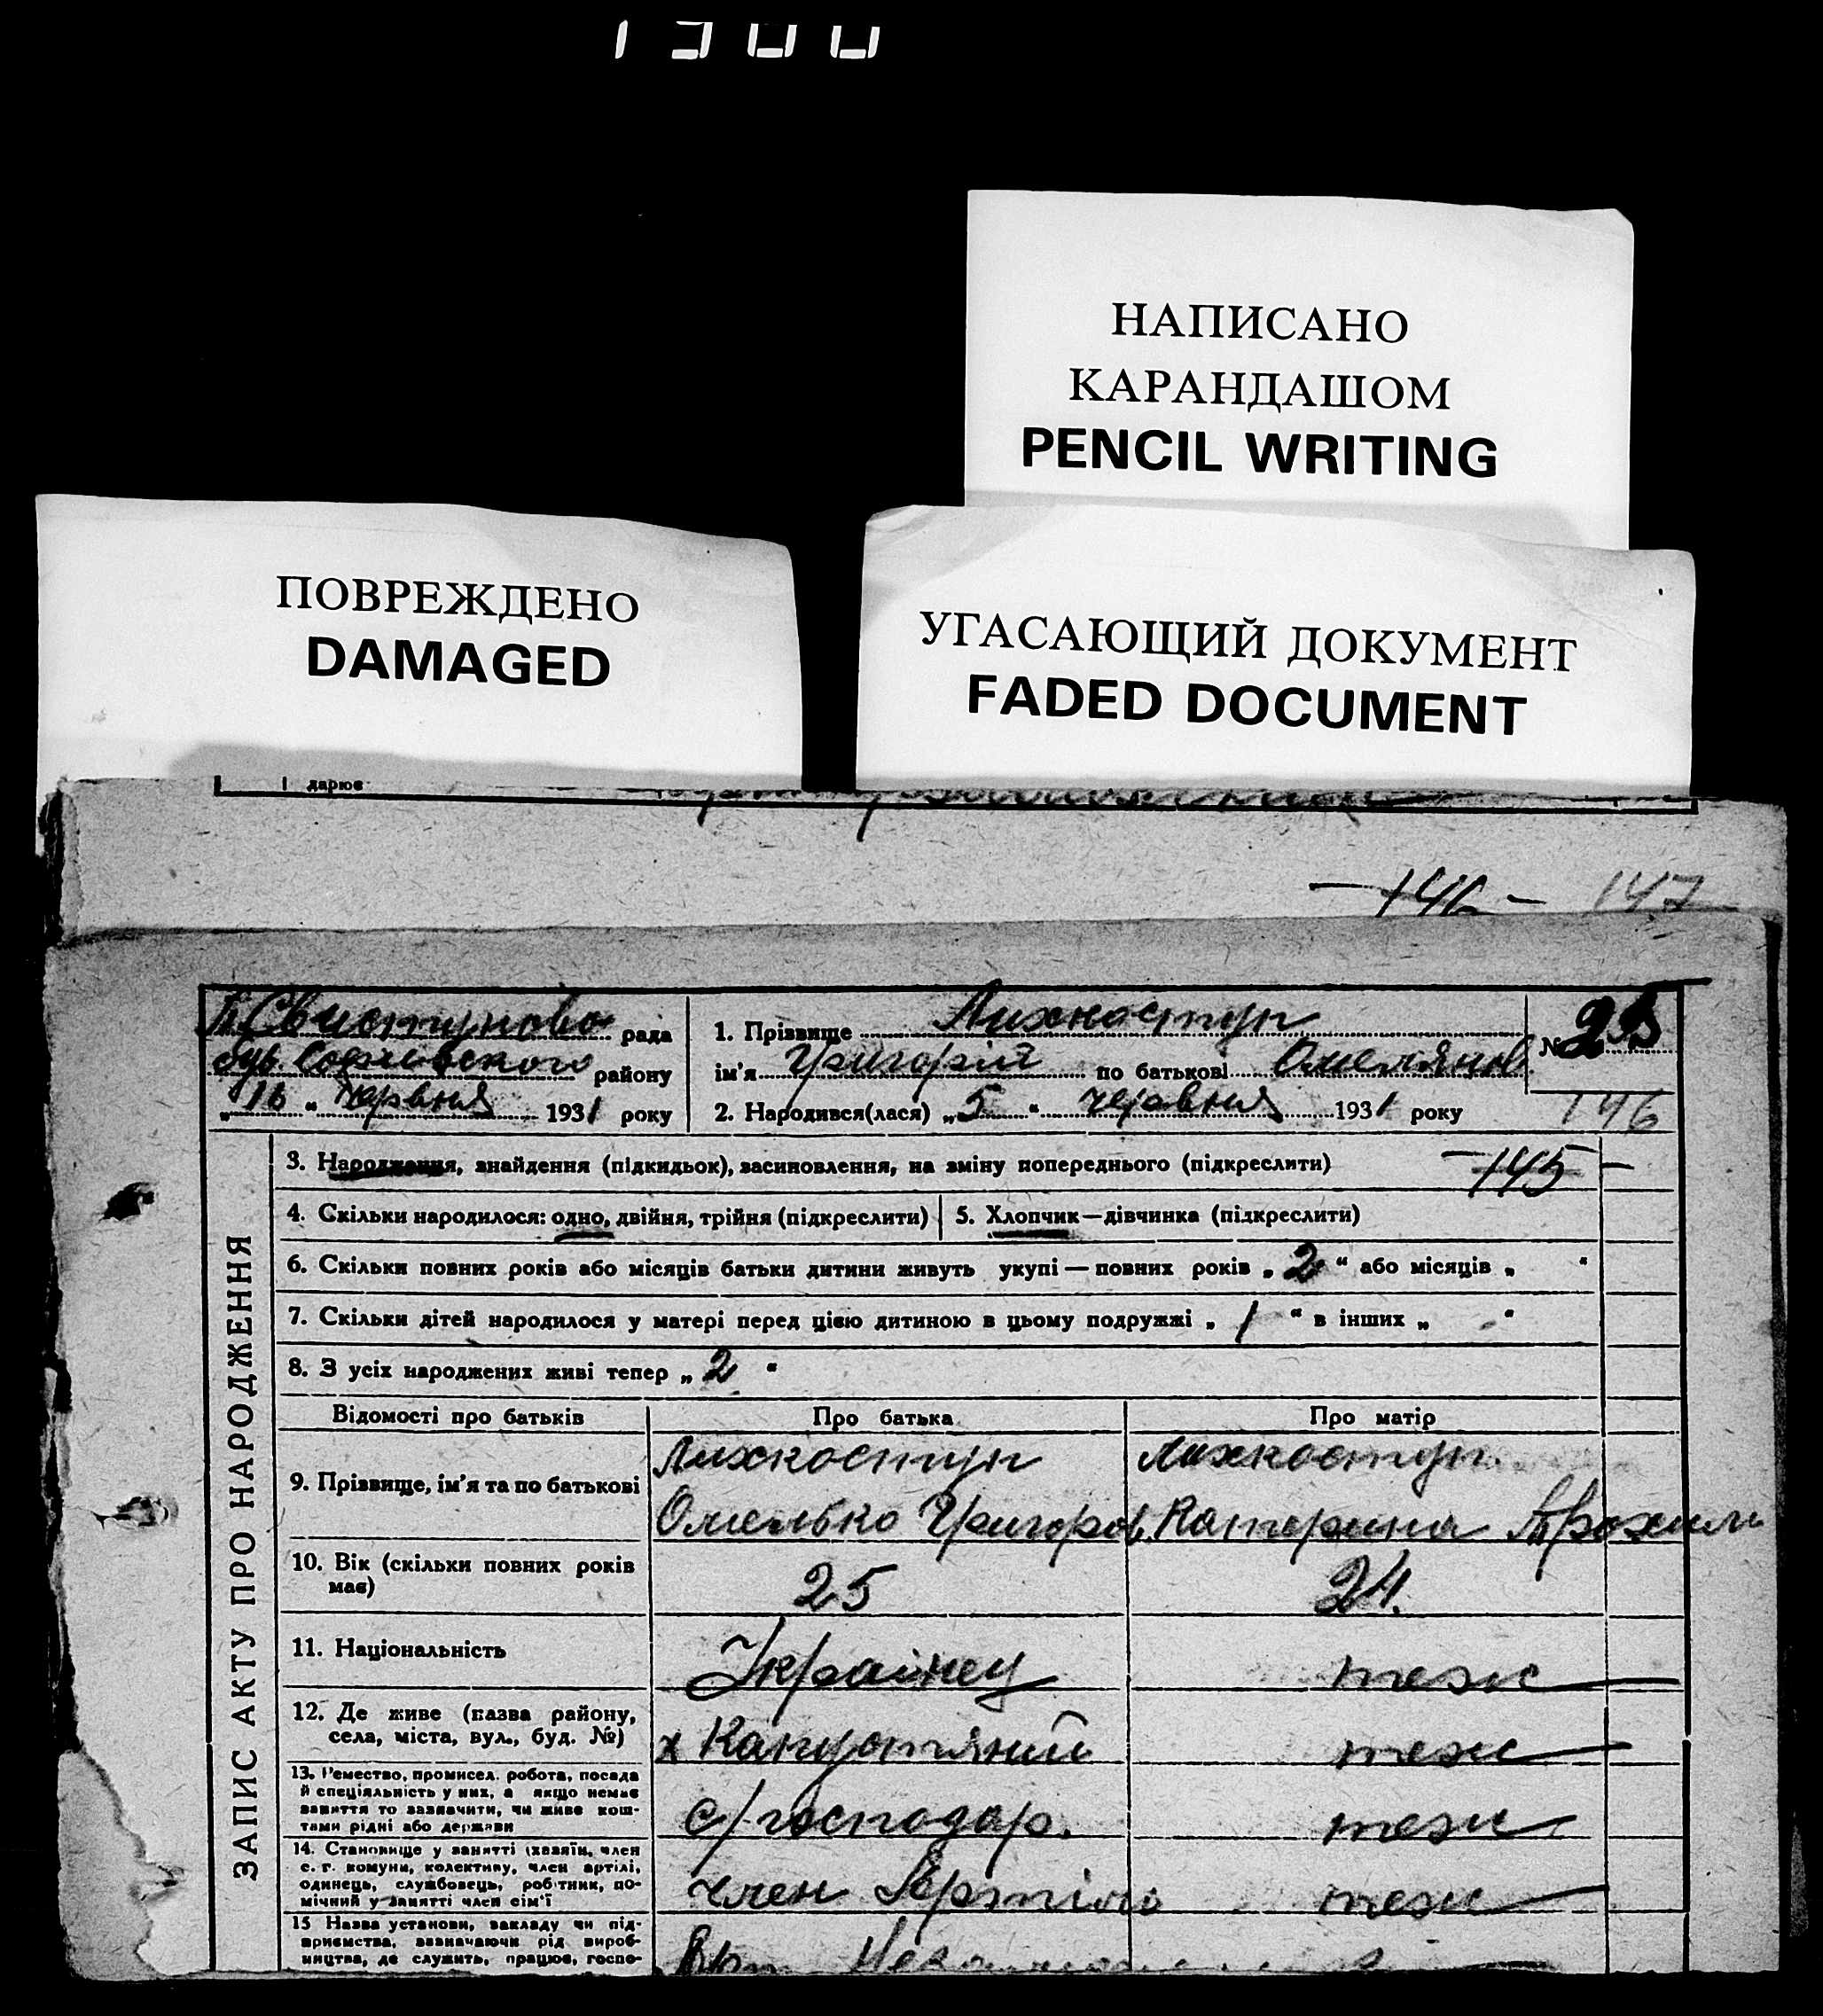 НАПИСАНО
КАРАНДАШОМ
PENCIL WRITING
ПОВРЕЖДЕНО
DAMAGED
УГАСАЮЩИЙ ДОКУМЕНТ
FADED DOCUMENT
дарює
146 - 147
Свистуново рада
району
"16" червня 1931 року
1. Прізвище Лихкоступ
ім'я Григорій по батькові Омелянов.
2. Народився(лася) "5" червня 1931 року
№ 25
146
ЗАПИС АКТУ ПРО НАРОДЖЕННЯ
3. Народження, знайдення (підкидьок), засиновлення, на зміну попереднього (підкреслити) - 145 -
4. Скільки народилося: одно, двійня, трійня (підкреслити) 5. Хлопчик—дівчинка (підкреслити)
6. Скільки повних років або місяців батьки дитини живуть укупі — повних років „ 2 “ або місяців „ “
7. Скільки дітей народилося у матері перед цією дитиною в цьому подружжі „ 1 “ в інших „ - “
8. З усіх народжених живі тепер „ 2 “
Відомості про батьків Про батька Про матір
9. Прізвище, ім'я та по батькові
Лихкоступ Лихкоступ
Омелько Григоров. Катерина
10. Вік (скільки повних років має) 25 24.
11. Національність Українец теж
12. Де живе (назва району, села, міста, вул., буд. №) х Канцотяний теж
13. Ремество, промисел, робота, посада й спеціяльність у них, а якщо немає заняття то зазначити, чи живе коштами рідні або держави
с/господар. теж
14. Становище у занятті (хазяїн, член с. г. комуни, колективу, член артілі, одинець, службовець, робітник, помічний у занятті член сім'ї
член Артіли теж
15 Назва установи, закладу чи підприємства, зазначаючи рід виробництва, де служить, працює, госпо-